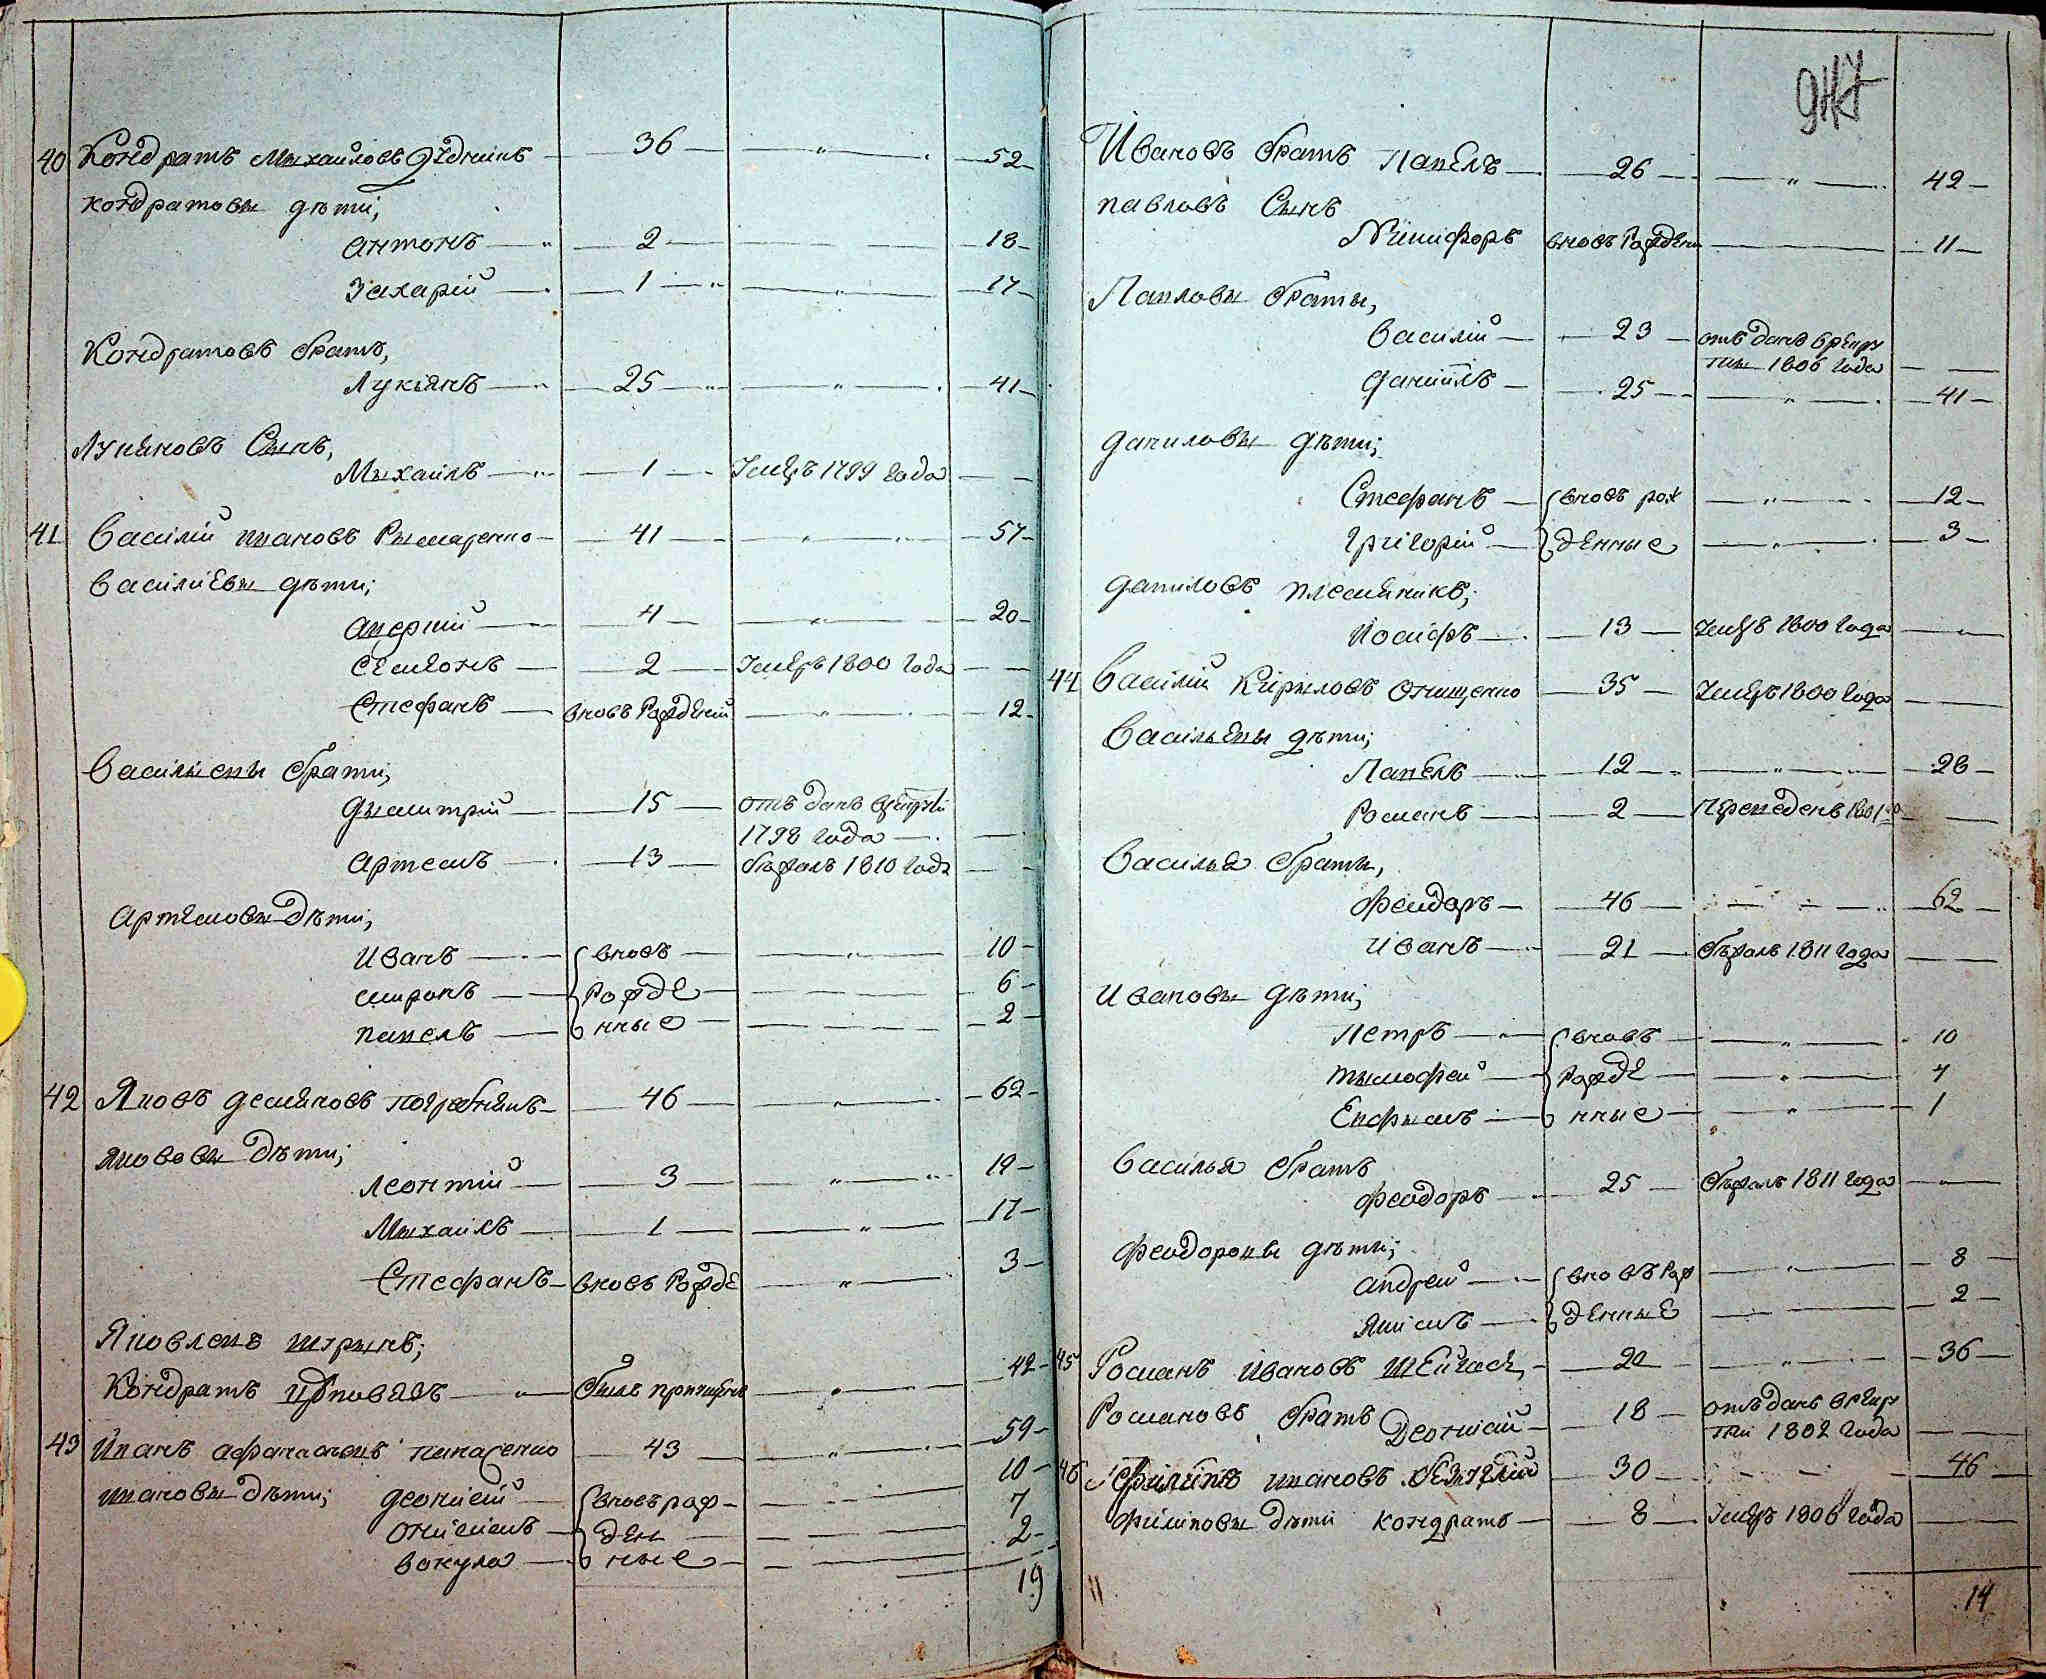 40 Кондратъ Михайловъ 36 — „ — 52
Кондратовы дѣти;
Антонъ — 2 — 18
Захарій — 1 — „ — 17
Кондратовъ братъ,
Лукіянъ — 25 — „ — 41
Лукяновъ Сынъ,
Михаилъ — 1 — Умеръ 1799 года —
41 Василій Ивановъ Рымаренко — 41 — „ — 57
Василіевы дѣти;
4 — „ — 20
Семіонъ — 2 — Умеръ 1800 года —
Стефанъ — вновь рожденій — „ — 12
Васильевы брати;
Дымитрій — 15 — отъданъ
1798 года —
Артемъ — 13 — бѣжалъ 1810 года —
Артемовы дѣти;
Иванъ — вновъ — „ — 10
Миронъ — рожде — 6
Павелъ — нные — 2
42 Яковъ Демяновъ — 46 — „ — 62
Яковови дѣти;
Леонтій — 3 — „ — 19
Михаилъ — 1 — „ — 17
Стефанъ — вновь рожде — „ — 3
Яковлевъ шурынъ;
Кондратъ — былъ — „ — 42
43 Иванъ Афанасьевъ — 43 — „ — 59
Ивановы дѣти; Деонисій — вновърож — 10
Онисимъ — ден — 7
Вакула — ные — 2
19
947
Ивановъ братъ Павелъ — 26 — „ — 42
Павловъ Сынъ
Никифоръ вновъ рожден — 11
Павловы браты,
Василій — 23 — отъданъ в рекру
ты 1806 года —
Даніилъ — 25 — „ — 41
Даниловы дѣти;
Стефанъ — вновъ рож — „ — 12
Григорій — денные — „ — 3
Даниловъ племяникъ;
Иосифъ — 13 — Умеръ 1800 года — „
44 Василій Кириловъ Онищенко — 35 — Умеръ 1800 года —
Васильевы дѣти;
Павелъ — 12 — „ — 28
Романъ — 2 — Переведенъ 1801го —
Василья браты,
Феодоръ — 46 — 62
Иванъ — 21 — бѣжалъ 1811 года —
Ивановы дѣти;
Петръ — вновъ — „ — 10
Тымофей — рожде — „ — 4
Евфымъ — нные — „ — 1
Василья братъ
Феодоръ — 25 — бѣжалъ 1811 года —
Феодоровы дѣти;
Андрей — вновъ рож — „ — 8
денные — 2
45 Романъ Ивановъ — 20 — „ — 36
Романовъ братъ Деонисій — 18 — отъданъ врекру
ты 1802 года —
46 Филипъ Ивановъ — 30 — 46
Филиповы дѣти Кондратъ — 8 — Умеръ 1806 года —
11 14